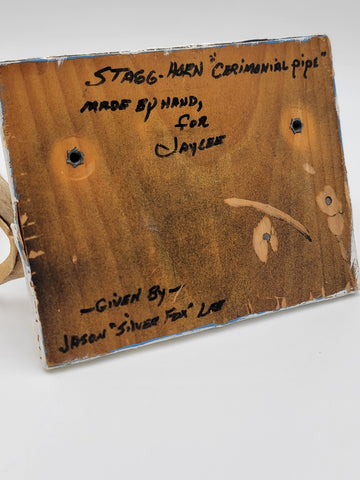 STAGG-HORN "CERIMONIAL PIPE"
MADE BY HAND,
FOR
JAYCEE
- GIVEN BY -
JASON "SILVER FOX" LEE